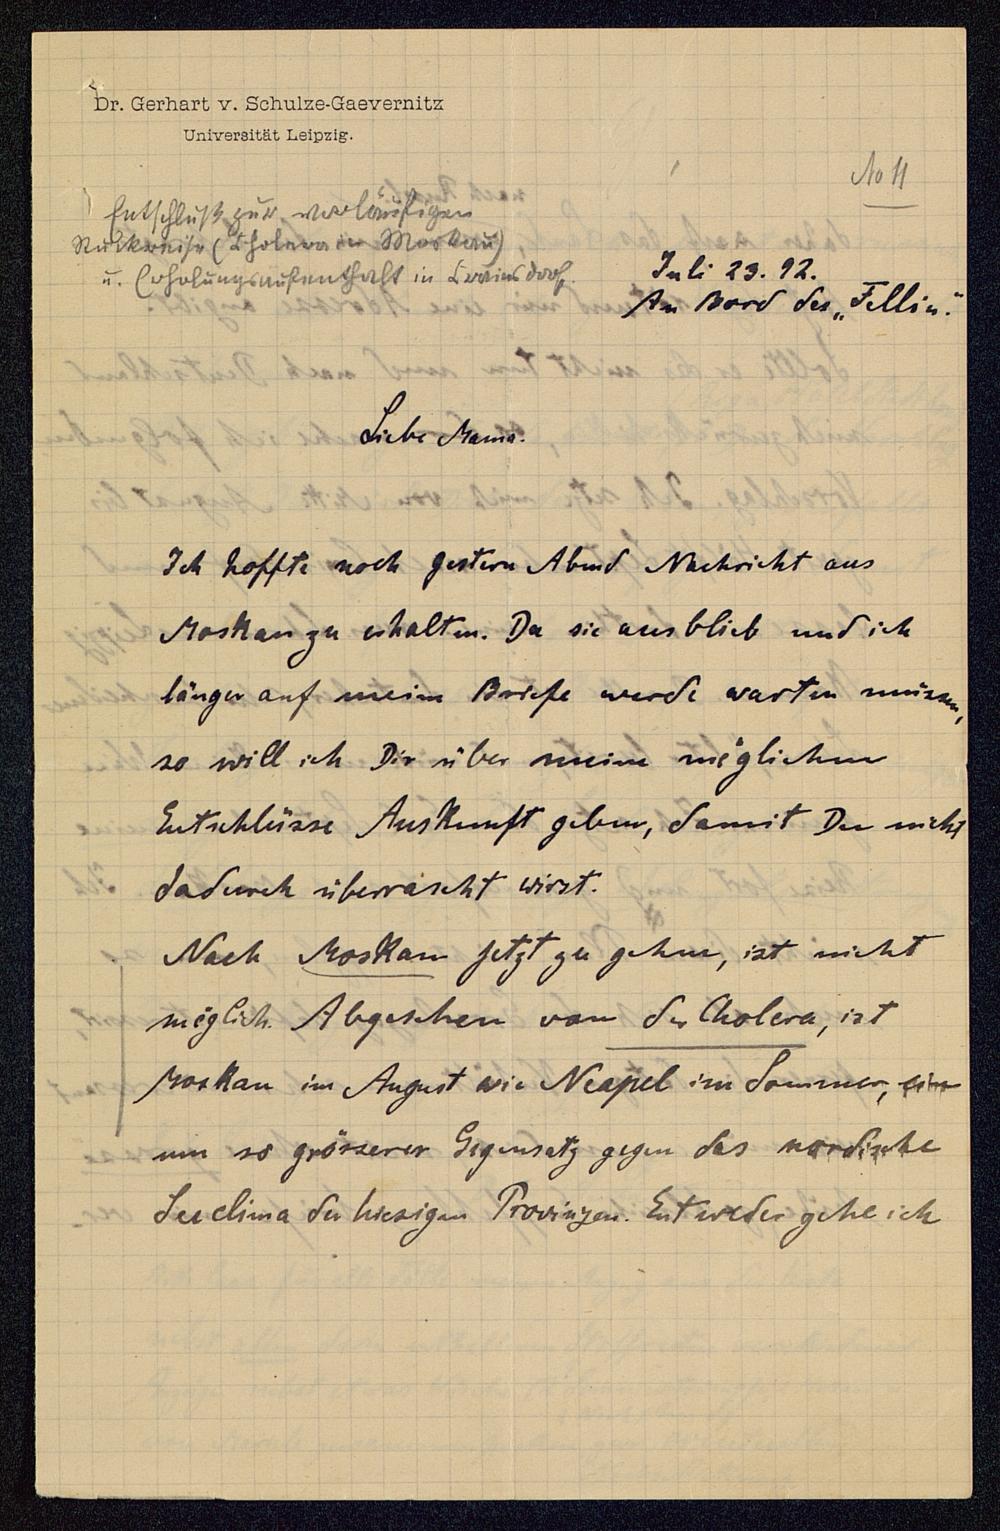 Dr. Gerhart v. Schulze-Gaevernitz
Universität Leipzig.
No 11
Entschluß zur vorläufigen
Rückreise (Cholera in Moskau)
u. Erholungsaufenthalt in Krainsdorf.
Juli 23. 92.
An Bord des „Fellin".
Liebe Mama.
Ich hoffte noch gestern Abend Nachricht aus
Moskau zu erhalten. Da sie ausblieb und ich
länger auf meine Briefe werde warten müssen,
so will ich Dir über meine möglichen
Entschlüsse Auskunft geben, damit Du nicht
dadurch überrascht wirst.
Nach Moskau jetzt zu gehen, ist nicht
möglich. Abgesehen von der Cholera, ist
Moskau im August wie Neapel im Sommer, ein
um so grösserer Gegensatz gegen das nordische
Seeclima der hiesigen Provinzen. Entweder gehe ich